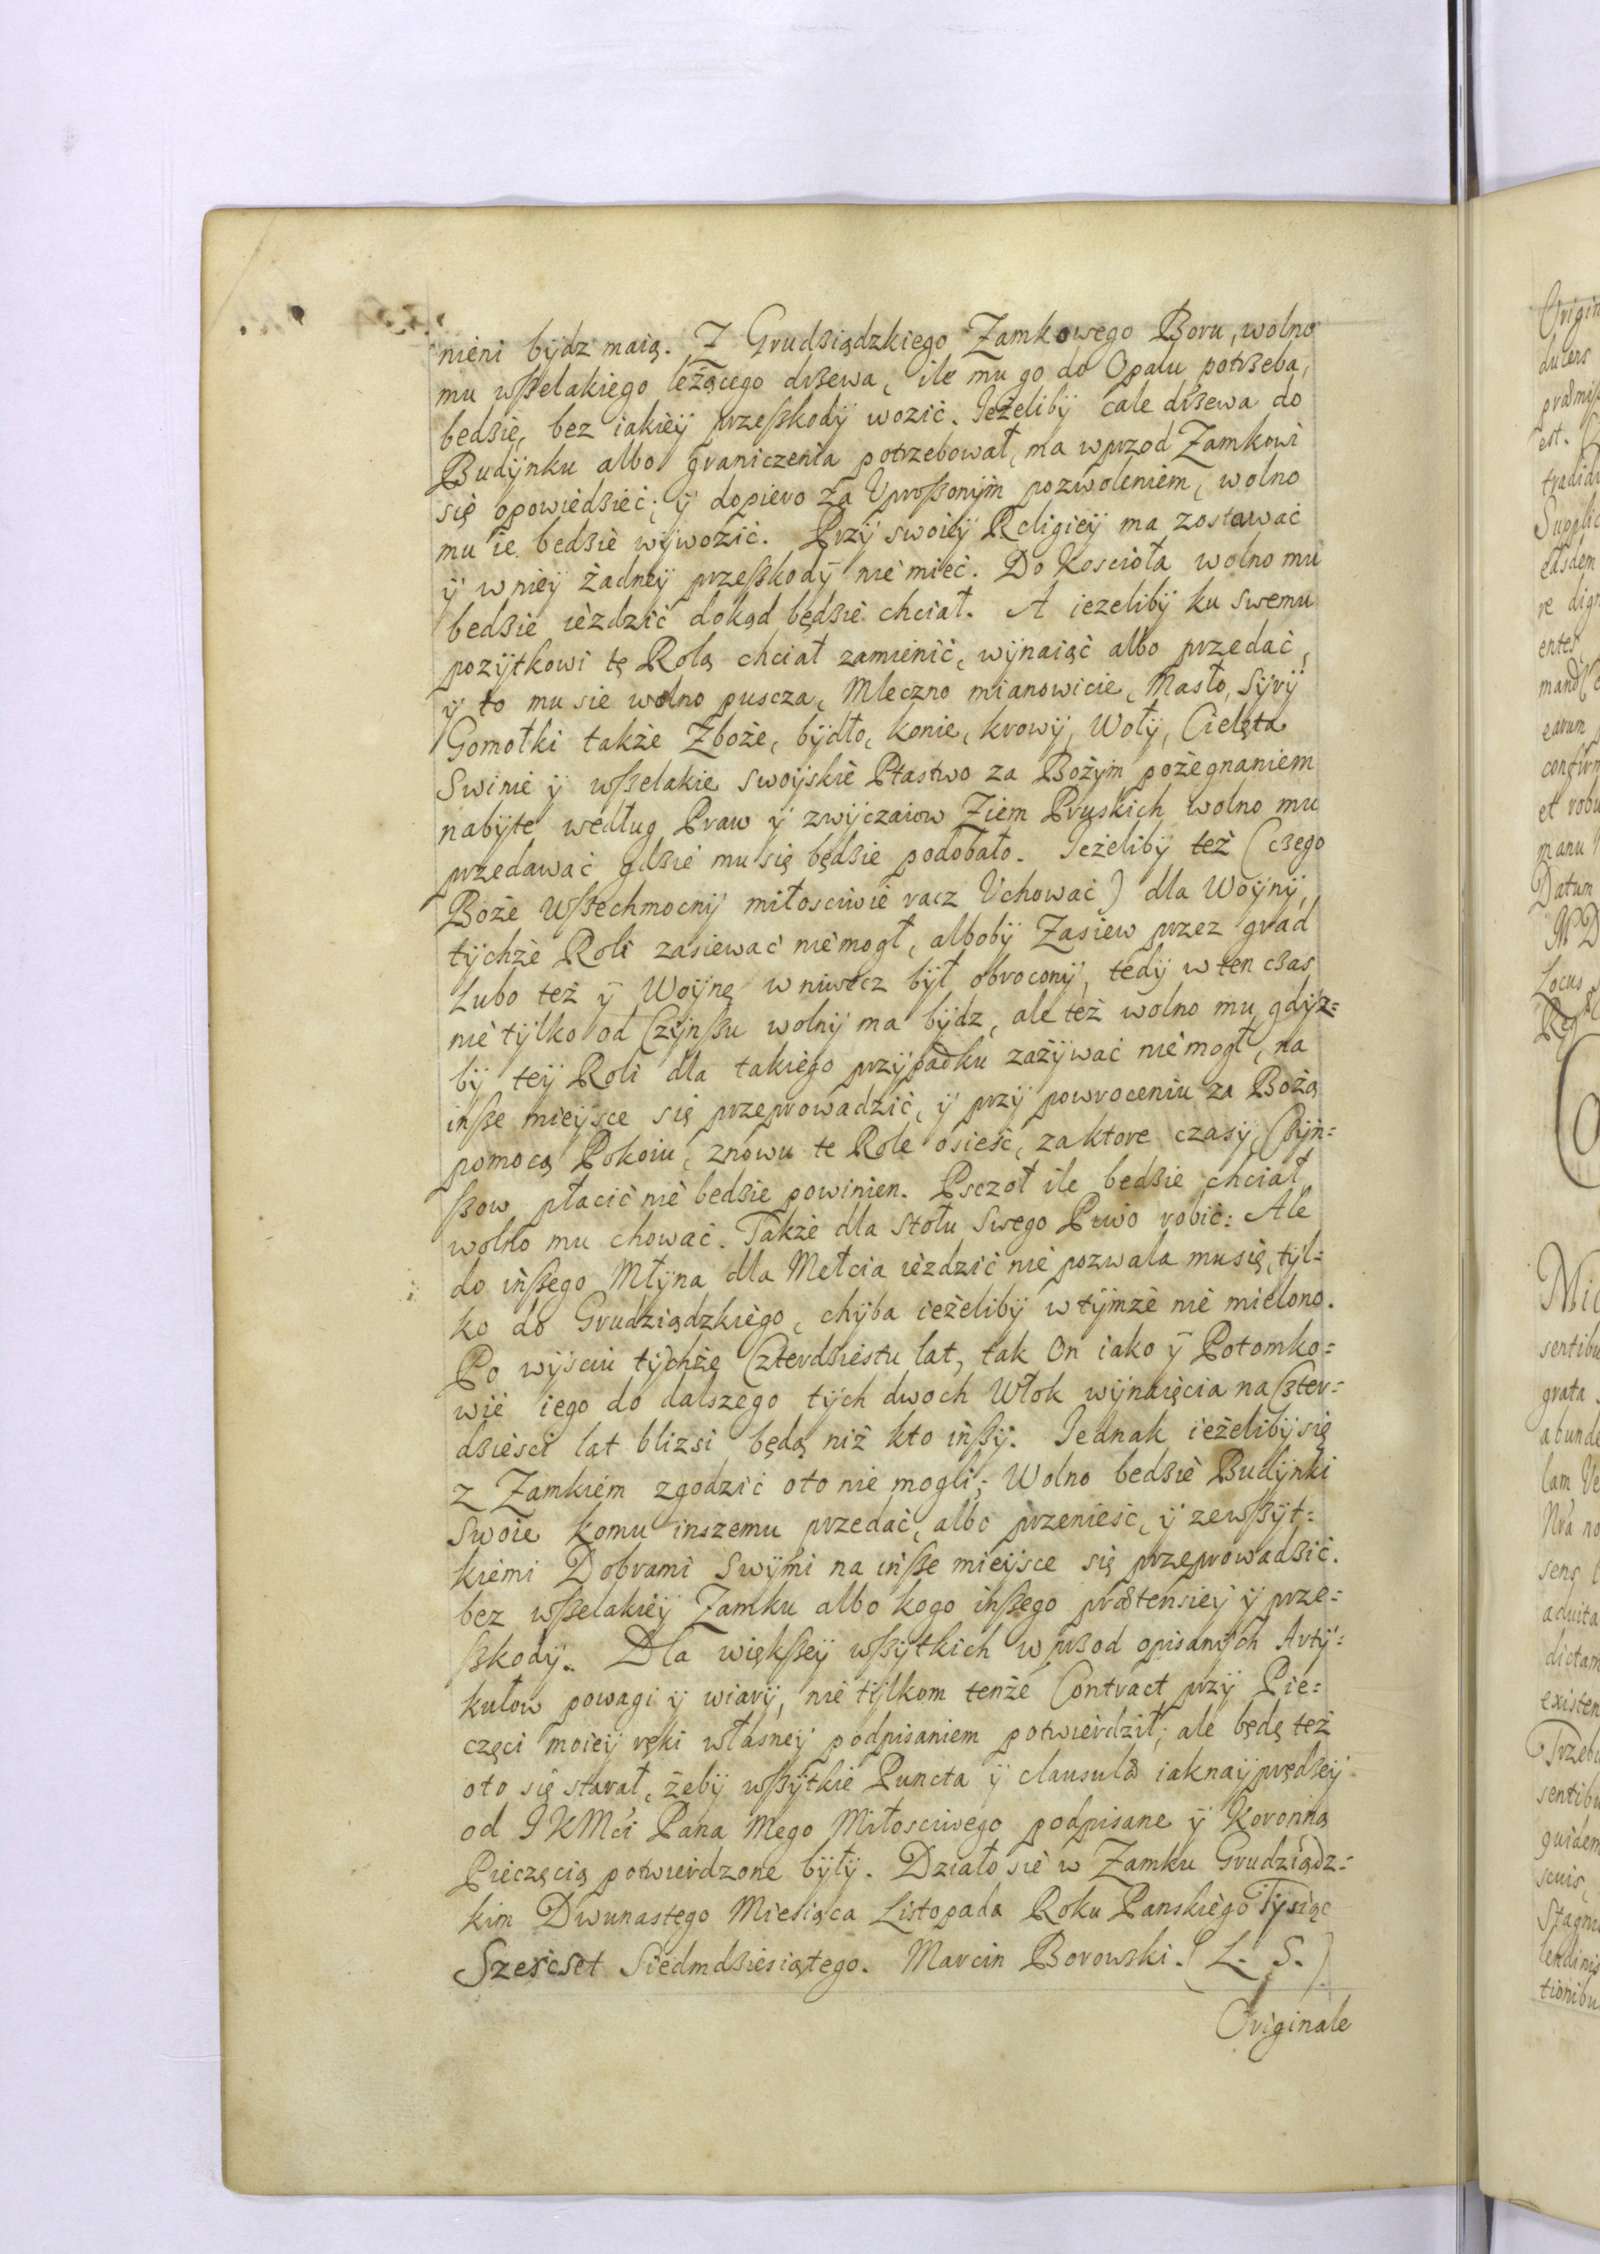 nieni bydz maią. Z Grudziądzkiego Zamkowego Boru, wolno
mu wszelakiego leżącego drzewa, ile mu go do Opału potrzeba,
bedzie, bez iakiey przeszkody wozić. Jeżeliby cale drzewa do
Budynku albo graniczenia potrzebował, ma wprzod Zamkowi
się opowiedzieć; y dopiero za Uproszonym pozwoleniem, wolno
mu ie bedzie wywozić. Przy swoiey Religiey ma zostawać
y w niey żadney przeszkody nie mieć. Do Kościoła wolno mu
bedzie ieździć dokąd będzie chciał. A iezeliby ku swemu
pozytkowi tę Rolą chciał zamienić, wynaiąć albo przedać,
y to mu sie wolno puscza, Mleczno mianowicie, Masło, Syry
Gomołki także Zboże, bydło, konie, krowy, Woły, Cielęta
Swinie y wszelakie swoyskie Ptastwo za Bożym pożegnaniem
nabyte według Praw y zwyczaiow Ziem Pruskich wolno mu
przedawać gdzie mu się będzie podobało. Jeżeliby też (czego
Boże Wszechmocny miłosciwie racz Uchować) dla Woyny,
tychże Roli zasiewać nie mogł, alboby Zasiew przez grad
Lubo też y Woynę wniwecz był obrocony, tedy w ten czas
nie tylko od Czynszu wolny ma bydz, ale też wolno mu, gdyż=
by tey Roli dla takiego przypadku zażywać nie mogł, na
insze mieysce się przeprowadzić, y przy powroceniu za Bożą
pomocą Pokoiu, znowu te Role osieść, za ktore czasy, Czyn=
szow płacić nie bedzie powinien. Psczoł ile bedzie chciał,
wolno mu chować. Także dla stołu Swego Piwo robić: Ale
do inszego Młyna dla Mełcia ieździć nie pozwala mu się, tyl=
ko do Grudziądzkiego, chyba ieżeliby w tymże nie mielono.
Po wyściu tychże Czterdziestu lat, tak On iako y Potomko=
wie iego do dalszego tych dwoch Włok wynaięcia na Czter=
dzieści lat blizsi będą niż kto inszy. Jednak ieżeliby się
z Zamkiem zgodzić oto nie mogli; Wolno bedzie Budynki
Swoie komu inszemu przedać, albo przenieść, y ze wszyt=
kiemi Dobrami Swymi na insze mieysce się przeprowadzić.
bez wszelakiey Zamku albo kogo inszego prætensiey y prze=
szkody. Dla większey wszytkich w przod opisanych Arty=
kułow powagi y wiary, nie tylkom tenże Contract przy Pie=
częci moiey ręki własney podpisaniem potwierdził; ale będę też
oto się starał, żeby wszytkie Puncta y clausulæ iaknayprędzey
od JKMći Pana Mego Miłosciwego podpisane y Koronną
Pieczęcią potwierdzone były. Działo sie w Zamku Grudziądz=
kim Dwunastego Miesiąca Listopada Roku Panskiego Tysiąc
Szescset Siedmdziesiątego. Marcin Borowski. (L. S.)
Originale